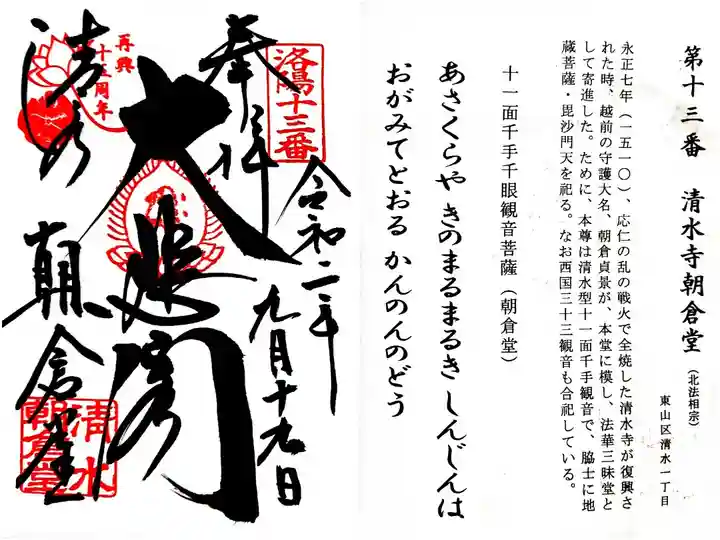 第十三番　清水寺朝倉堂（北法相宗）
東山区清水一丁目
永正七年（一五一〇）、応仁の乱の戦火で全焼した清水寺が復興さ
れた時、越前の守護大名、朝倉貞景が、本堂に模し、法華三昧堂と
して寄進した。ために、本尊は清水型十一面千手観音で、脇士に地
蔵菩薩・毘沙門天を祀る。なお西国三十三観音も合祀している。
十一面千手千眼観音菩薩（朝倉堂）
あさくらや きのまるまるき しんじんは
おがみてとおる かんのんのどう
洛陽十三番
奉拝
令和二年
九月十九日
大悲閣
再興
十五周年
清水
朝倉堂
清水
朝倉堂